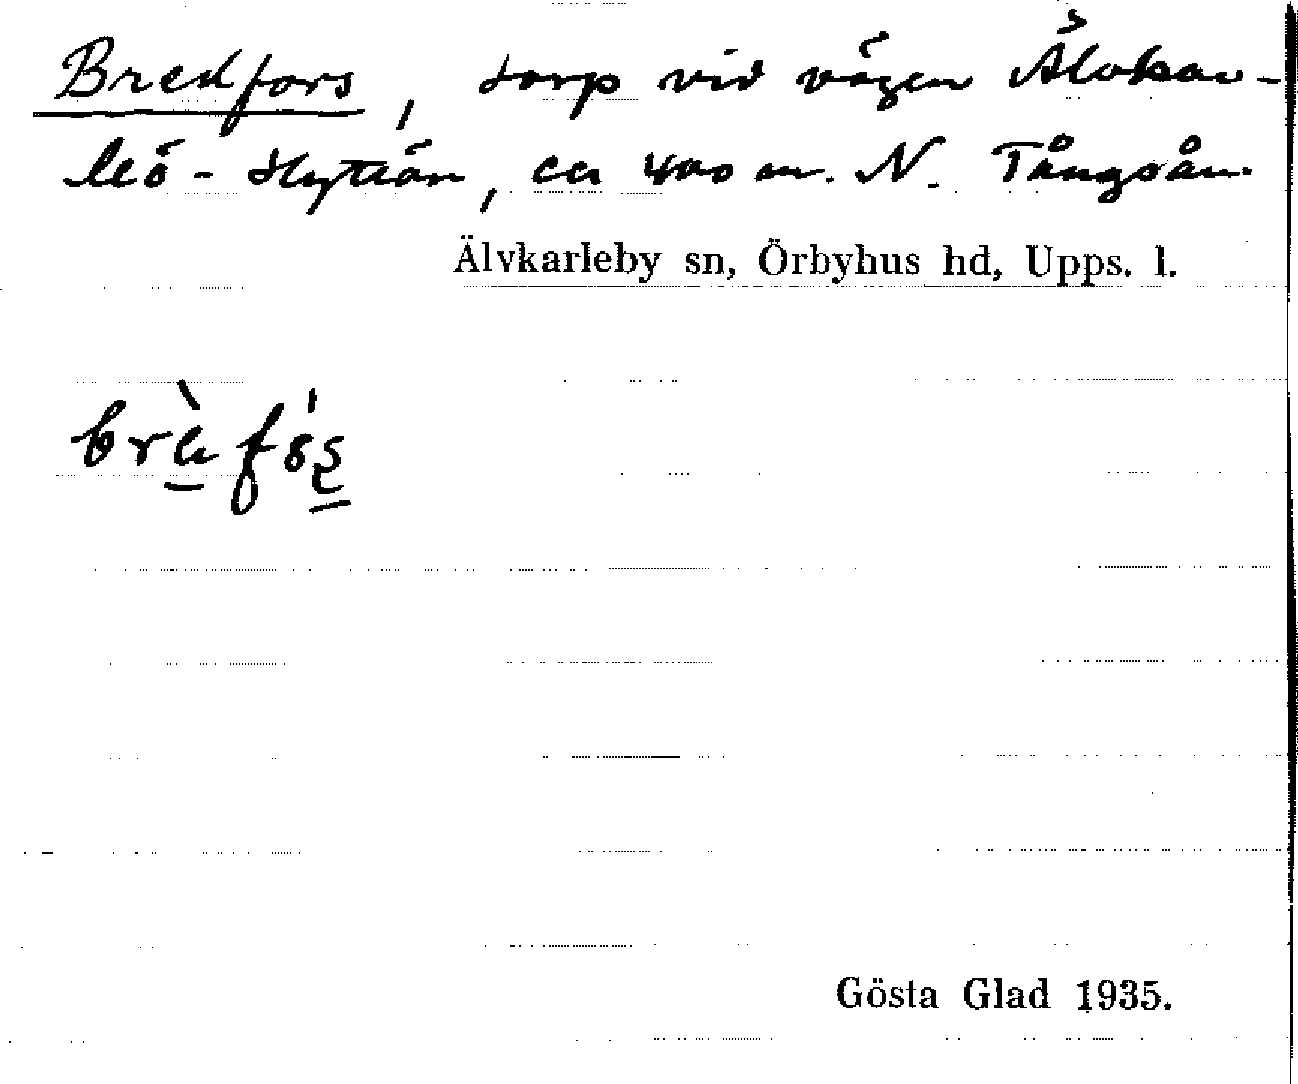 Bredfors, torp vid vägen Älvkar-
leö - Hyttön, ca 400 m. N. Tångsån.
Älvkarleby sn, Örbyhus hd, Upps. l.
Gösta Glad 1935.